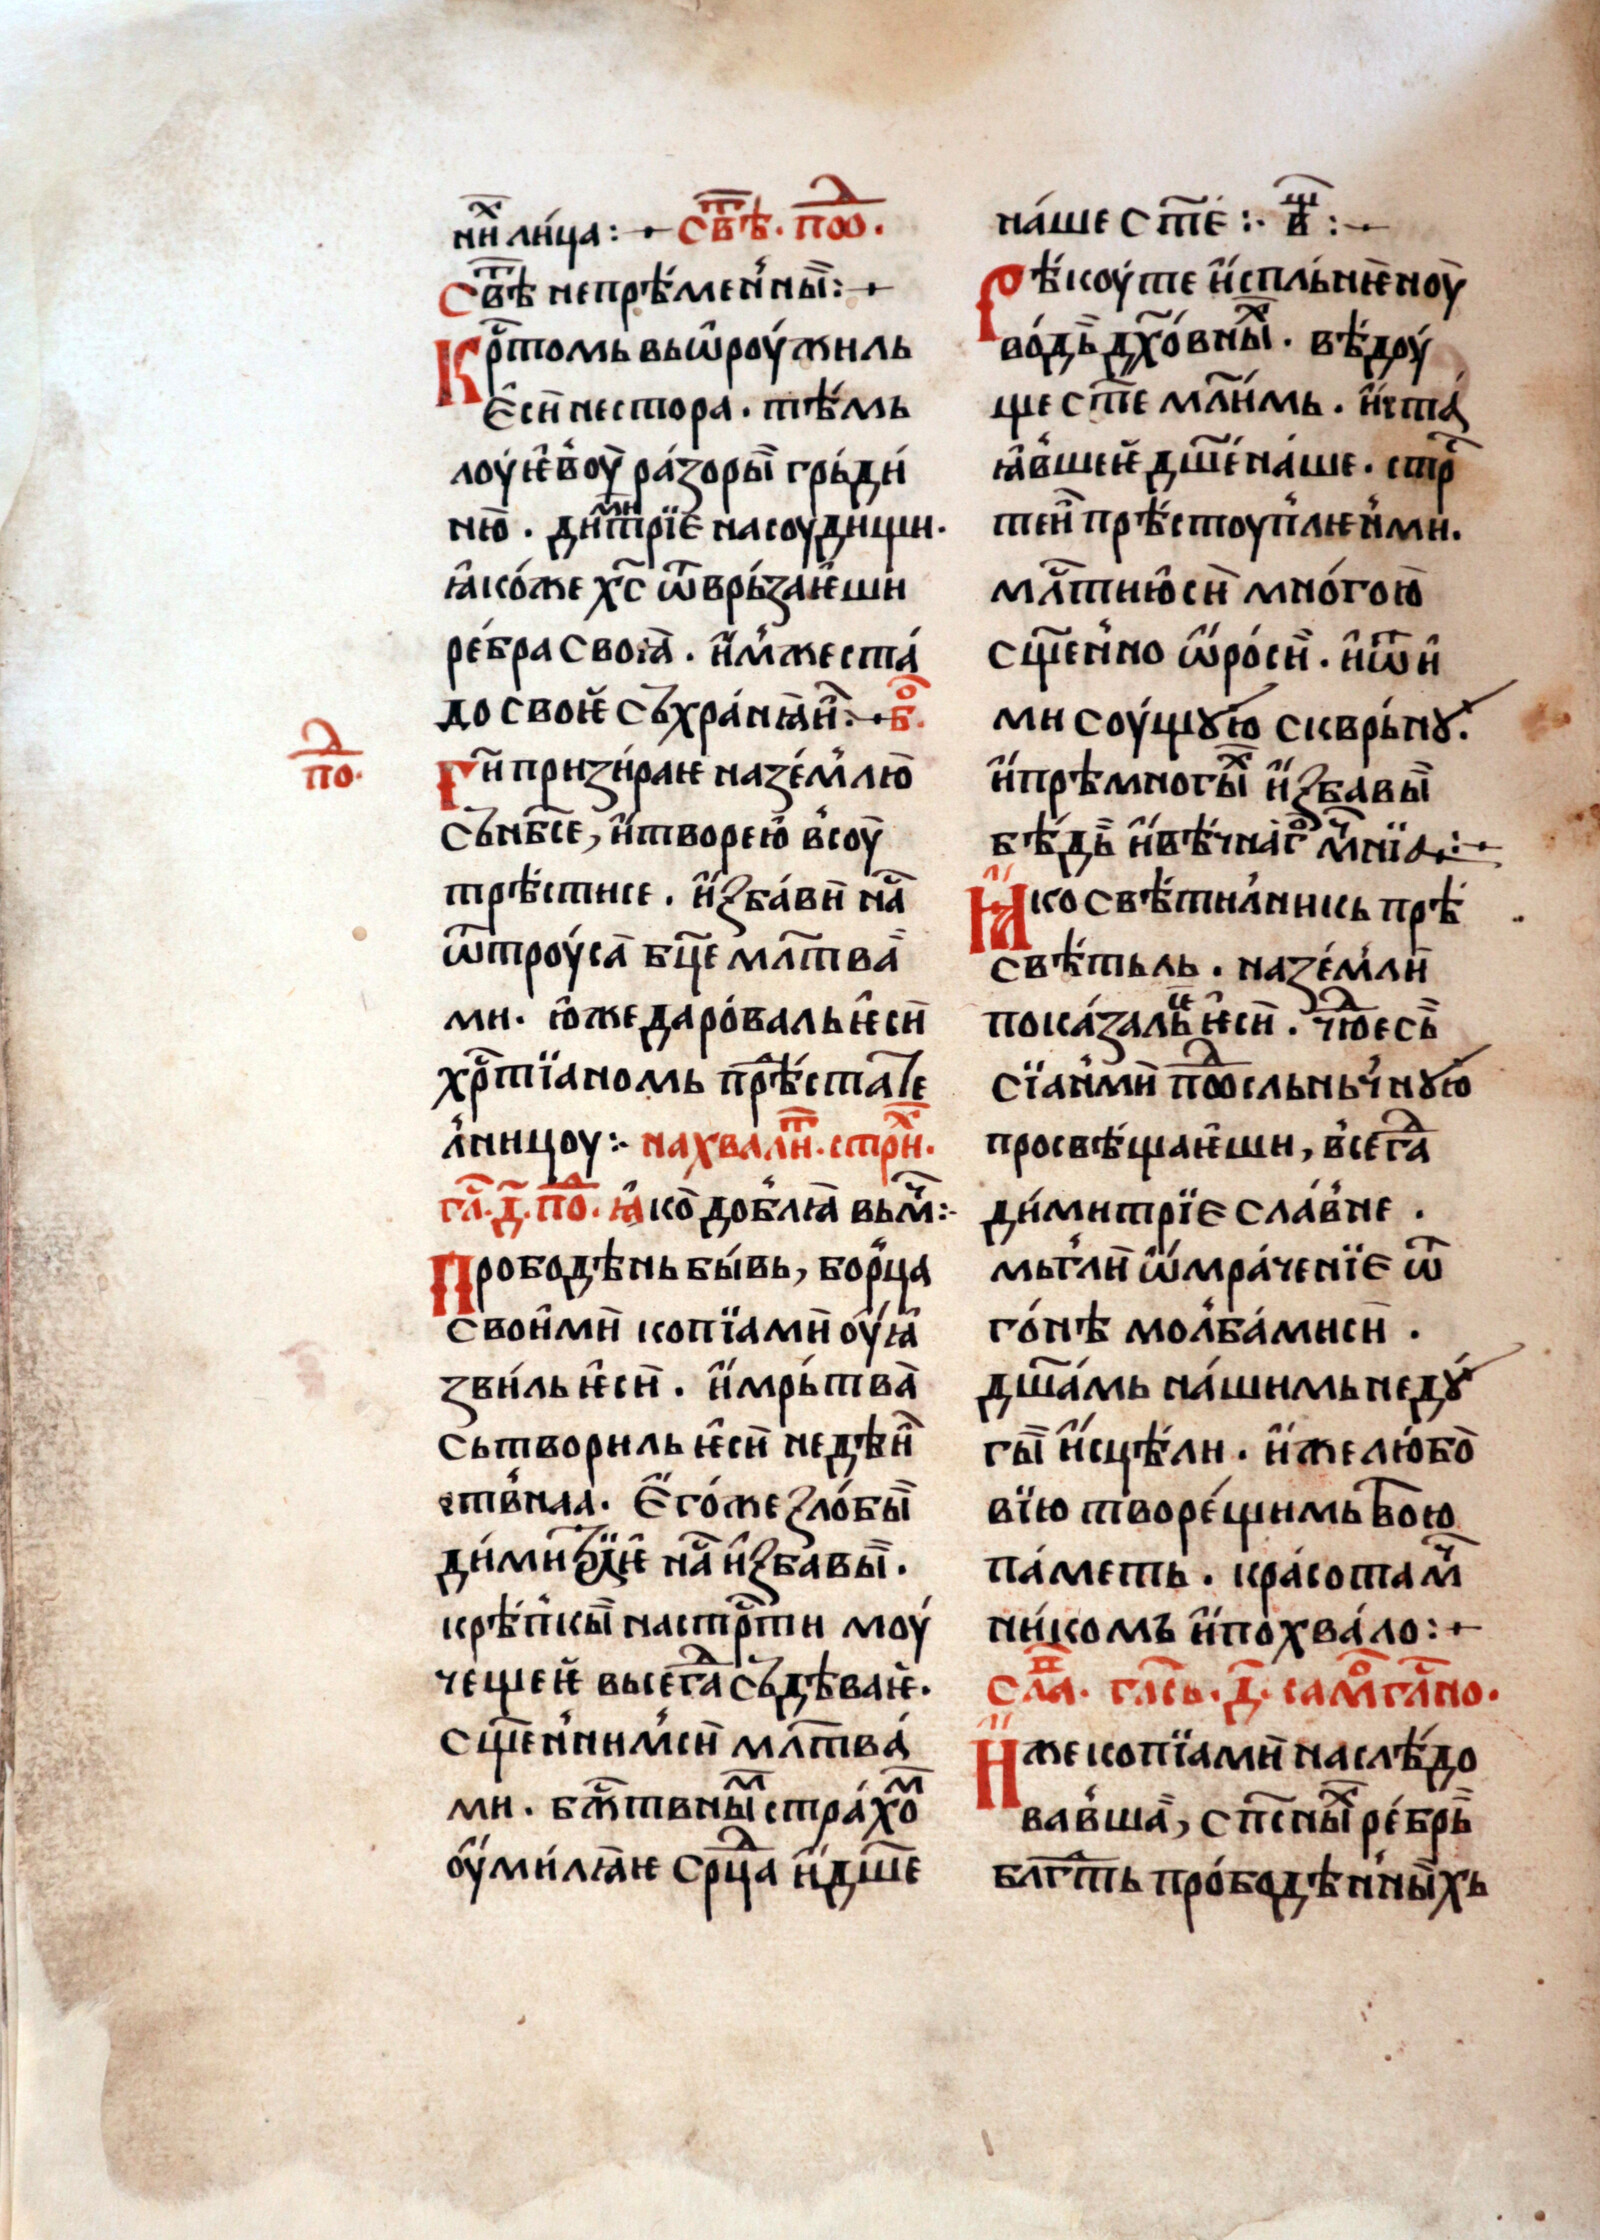 нїи҆ ли́ца :· свѣⷮ. поⷣ.
Свѣⷮ непрѣ́мен҆ныⷨ :·
Крⷭ҇томь вьѡ҆роу́жиль
ѥ҆си несто́ра . тѣ́мь
лоу́ѥ҆воу ра́зоры гръ́ди
ню . димнⷮрїе на соудищи.
ꙗ҆ко́же хⷭ҇ ѿврь́заѥ҆ши
ре́бра своꙗ . и҆мже ста́
до своѥ съхра́нꙗи :· бⷪ.
поⷣ.
Ги призи́раѥ на зе́млю
сънбⷭ҇е, и҆твореѥ҆ всоу
трѣ́стисе . и҆збави наⷭ
ѿтроу́са бц҃е млⷭ҇тва
ми . ю҆же дарова́ль ѥ҆си
хрⷭ҇тїаномь прѣ́стате
л҆ницоу :· на хвалиⷮ . стриⷯ.
глⷭ҇. д҃. поⷣ. ꙗ҆ко до́блꙗ вьмⷱ :·
Прободѣнь бы́вь, бор҆ца
свои҆ми копїами оу҆ꙗ҆
зви́ль ѥ҆си . и҆мрь́тва
сьтвориль ѥ҆си недѣи
ств҆наа . Е҆го́же зло́бы
ди́митрїѥ наⷭ и҆збавы .
крѣ́п҆кы настрⷭ҇ти моу́
чещеѥ вьсегⷣа съдѣваѥ.
сщ҃ен҆ними҆си млⷭ҇тва́
ми . бжⷭ҇твныⷨ стра́хоⷨ
оу҆ми́лꙗѥ срⷣца и҆дш҃е
на́ше ст҃е :· иⷩ҇ :·
Рѣ́коу́ те и҆спль́нѥноу
во́дь дх҃о́вныⷯ . вѣ́доу́
ще ст҃е мл҃и́мь . и҆ста́
ꙗ҆в҆шеѥ дш҃е на́ше . стрⷭ҇
теи прѣ́стоуплѥни҆ми.
млⷭ҇тию҆си мно́гою
сщ҃ен҆но ѡ҆ро́си . и҆ѿи҆
ми соу́щꙋю скврь́нꙋ.
и҆прѣмногыⷯ и҆збавы
бѣ́дь и҆вѣ́чнаⷢ҇ мⷱнїа :·
Ꙗ҆ко свѣ́тил҆никь прѣ́
свѣ́тьль . на зе́мли
пока́заль ѥ҆си . чюⷣесь
сїан҆ми поⷣсль́ньч҆нꙋю
просвѣ́щаѥ҆ши, всегⷣа
ди́митрїе сла́вне .
мьгли ѡ҆мра́ченїе ѿ
го́нѣ мол҆ба́миси .
дш҃а́мь на́шимь недꙋ́
гы и҆сцѣ́ли . и҆же любо
вїю творе́щимь твою
па́меть . кра́сота мⷱ
ни́комь и҆похва́ло :·
слаⷡ҇. глсь. д҃. самоⷢ҇лⷭ҇но.
И҆же копїами на слѣ́до
вав҆ша, сп҃сныⷯ ре́брь
блгⷣть про́бодѣн҆ныхь